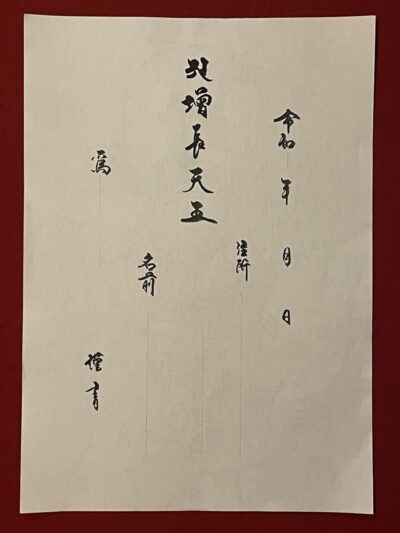 令和 年 月 日
住所
增長天王
名前
為
謹書